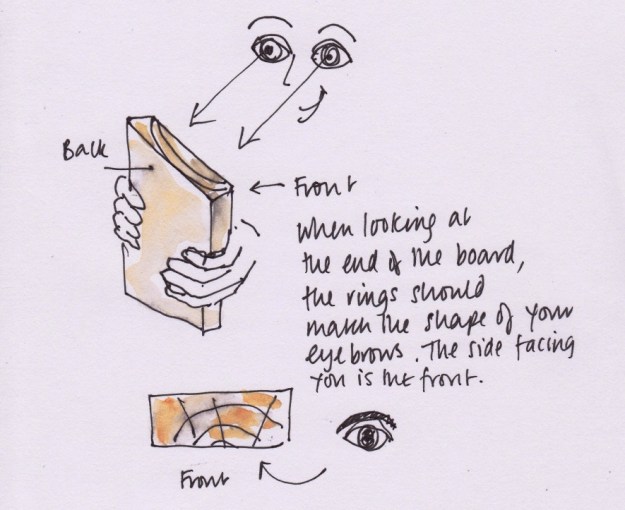 Back
Front
When looking at
the end of the board,
the rings should
match the shape of your
eyebrows. The side facing
you is the front.
Front